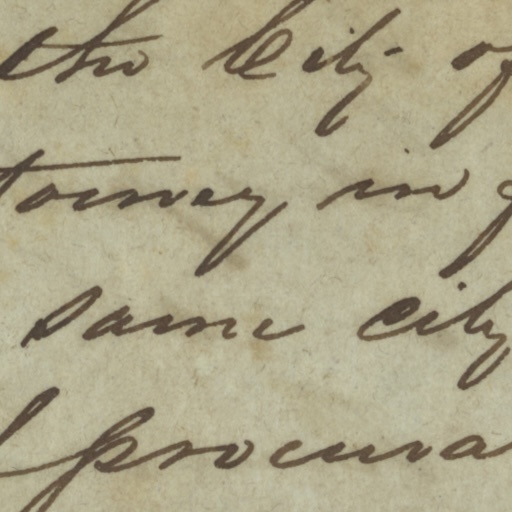 the City of
torney in
same city
procura